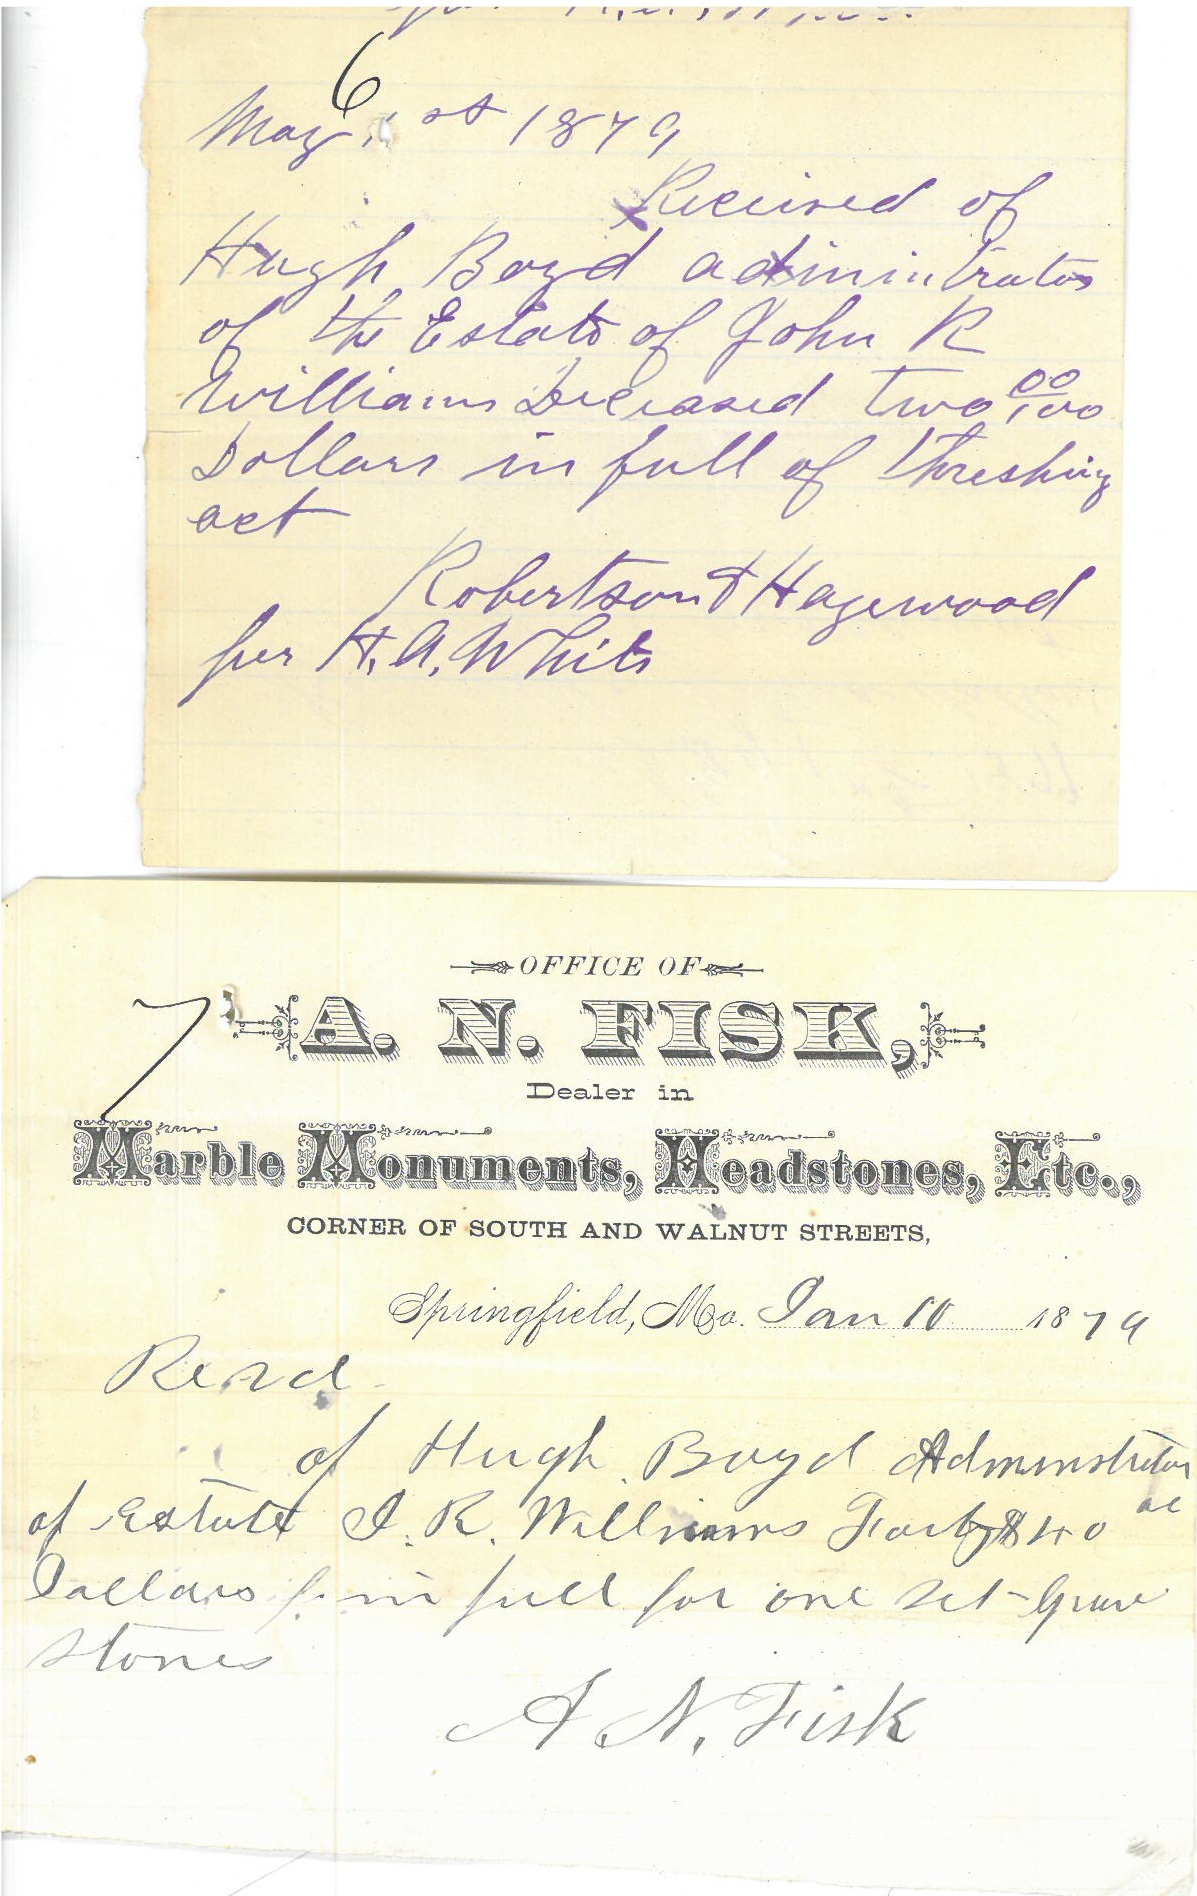 6
May 1st 1879
Received of
Hugh Boyd adminintrator
of the Estate of John R
Williams Deceased two 00/100
Dollars in full of threshing
act
Robertson & Hagewood
per H. A. White
OFFICE OF
7 A. N. FISK,
Dealer in
Marble Monuments, Headstones, Etc.,
CORNER OF SOUTH AND WALNUT STREETS,
Springfield, Mo. Jan 10 1879
Recvd
of Hugh Boyd Admmnstrator
of Estate J. R. Williams Forty $40 oc
Dollars in full for one set Grave
stones
A N. Fisk